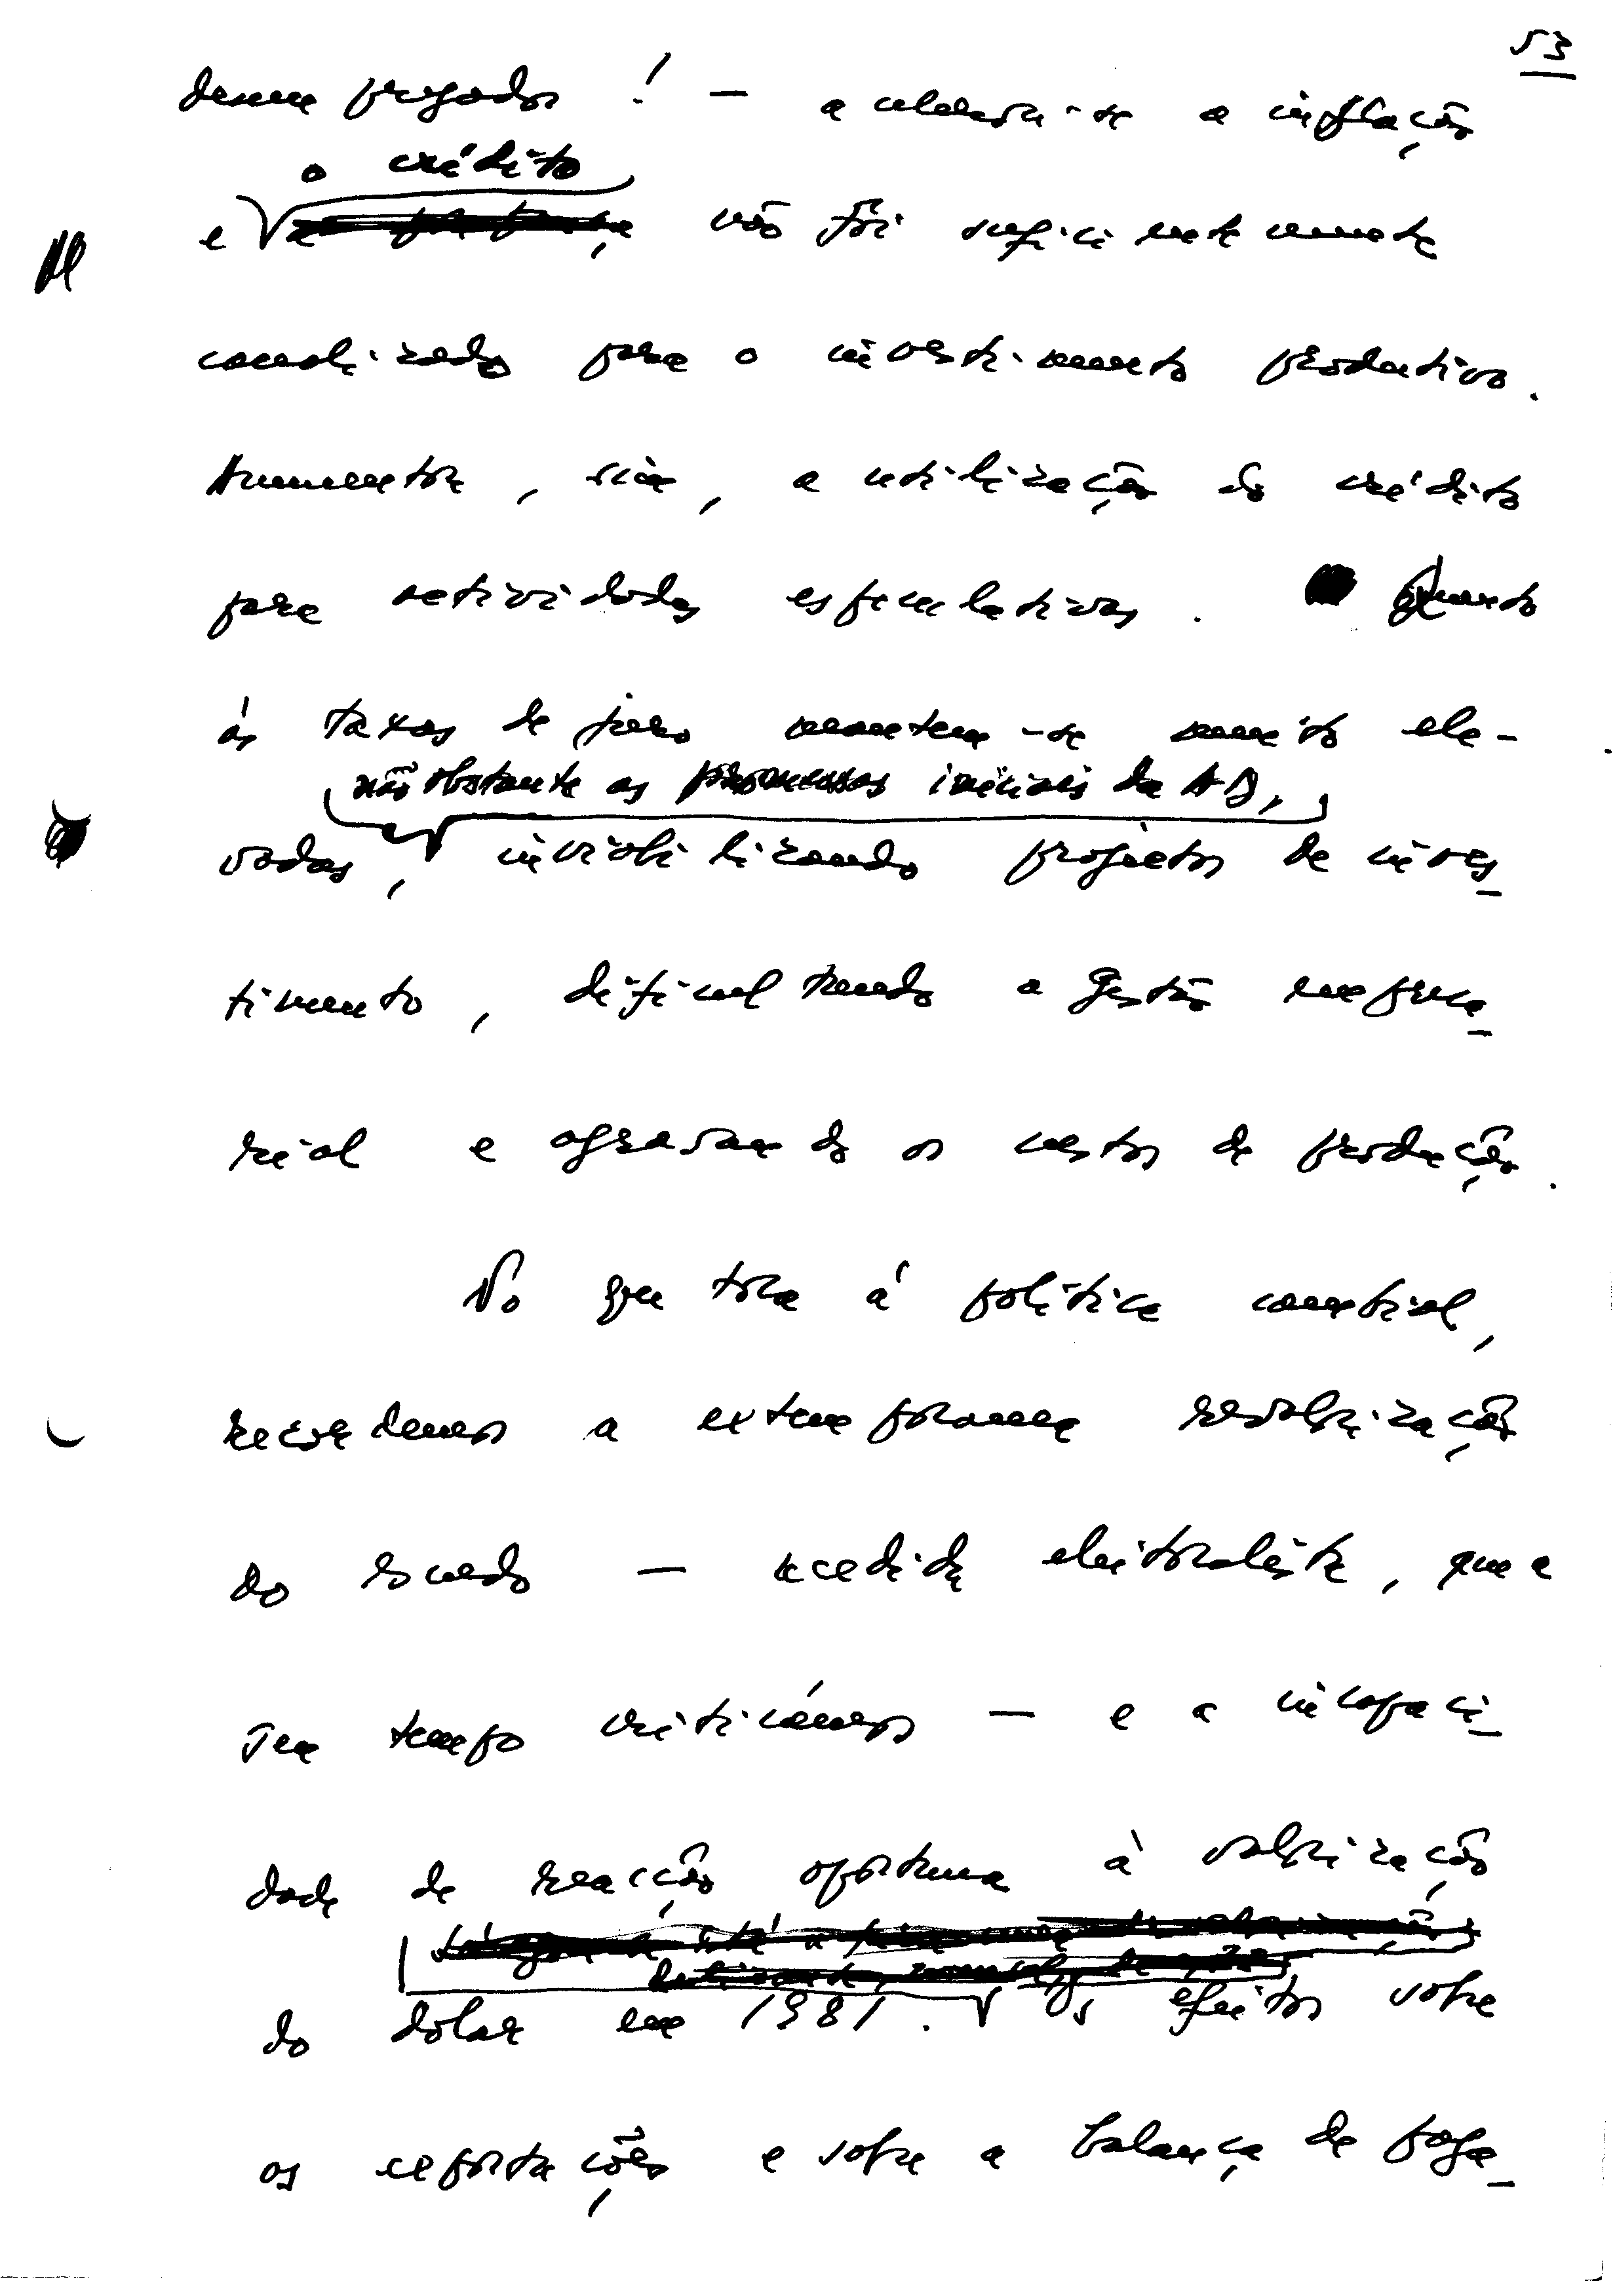 53
desempregados ! — acelerou-se a inflação
o crédito
e não foi suficientemente
canalizado para o investimento produtivo.
Aumentou, sim, a utilização do crédito
para actividades especulativas. Quanto
às taxas de juro mantem-se muito ele-
não obstante as promessas iniciais da AD,
vadas, inviabilizando projectos de inves-
timento, dificultando a gestão empresa-
rial e agravando os custos de produção.
No que toca à política cambial,
recordemos a extemporanea revalorização
do escudo — medida eleitoralista, que a
seu tempo criticámos — e a incapaci-
dade de reacção oportuna à valorização
do dolar em 1981. Os efeitos sobre
as exportações e sobre a balança de paga-